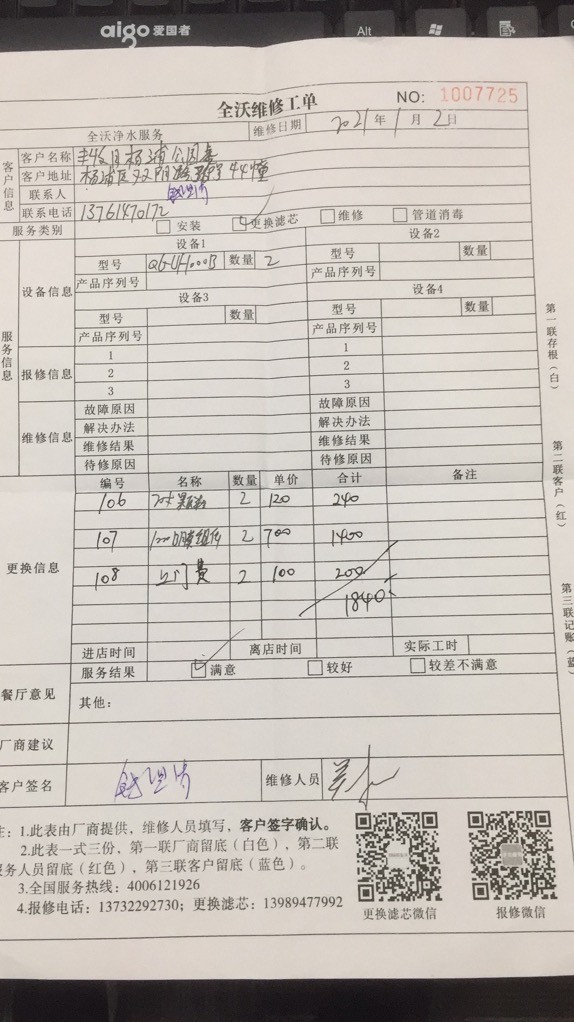 aigo 爱国者
Alt
全沃维修工单
NO: 1007725
全沃净水服务 维修日期 2021年1月2日
客户信息
客户名称
客户地址 杨浦区 44幢
联系人
联系电话 13761470172
服务类别 安装 更换滤芯 维修 管道消毒
服务信息
设备信息
设备1 设备2
型号 QG-U-1000B 数量 2 型号 数量
产品序列号 产品序列号
设备3 设备4
型号 数量 型号 数量
产品序列号 产品序列号
报修信息
1 1
2 2
3 3
维修信息
故障原因 故障原因
解决办法 解决办法
维修结果 维修结果
待修原因 待修原因
更换信息
编号 名称 数量 单价 合计 备注
106 2 120 240
107 2 700 1400
108 上门费 2 100 200
1840
进店时间 离店时间 实际工时
服务结果 满意 较好 较差不满意
餐厅意见 其他:
厂商建议
客户签名 维修人员
注: 1.此表由厂商提供，维修人员填写，客户签字确认。
2.此表一式三份，第一联厂商留底（白色），第二联
服务人员留底（红色），第三联客户留底（蓝色）。
3.全国服务热线：4006121926
4.报修电话：13732292730；更换滤芯：13989477992
更换滤芯微信 报修微信
第一联存根（白）
第二联客户（红）
第三联记账（蓝）